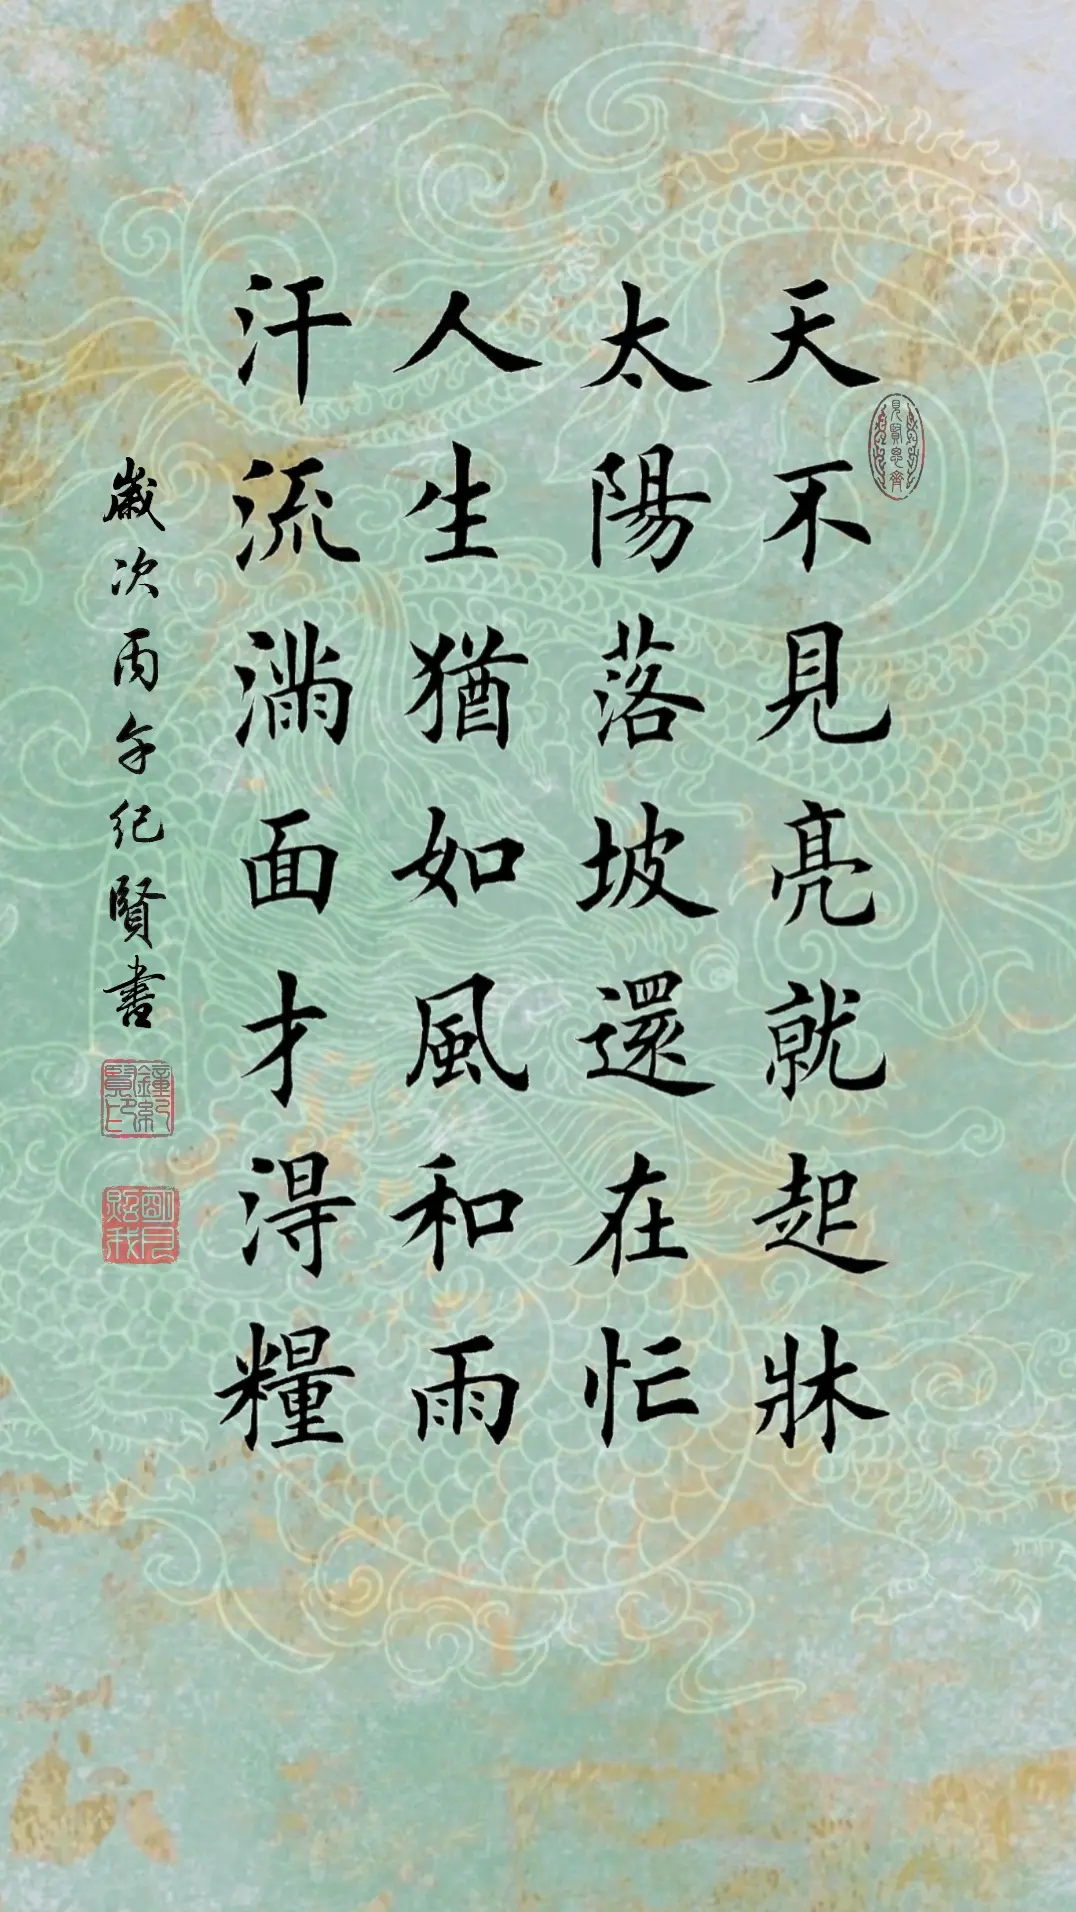 天不見亮就起牀
太陽落坡還在忙
人生猶如風和雨
汗流滿面才得糧
歲次丙午紀賢書
見賢思齊
鐘紀賢印